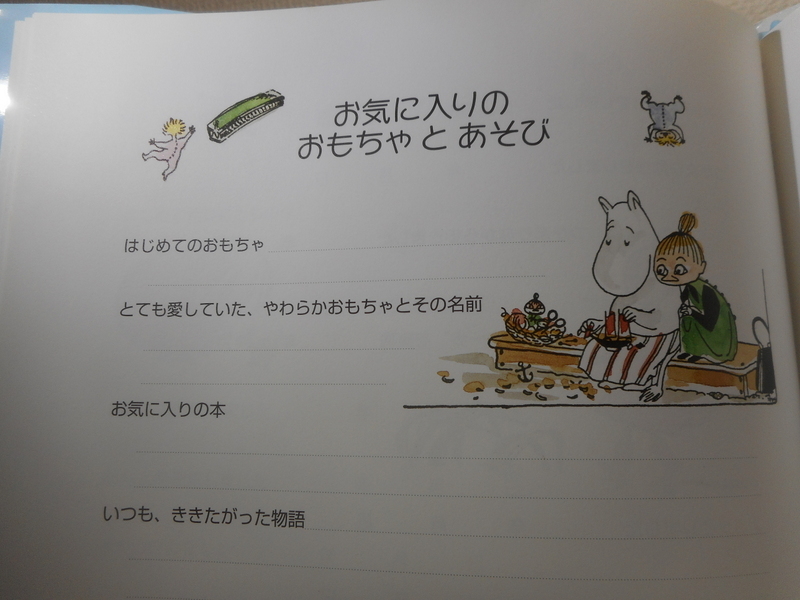 お気に入りの
おもちゃ と あそび
はじめてのおもちゃ
とても愛していた、やわらかおもちゃとその名前
お気に入りの本
いつも、ききたがった物語